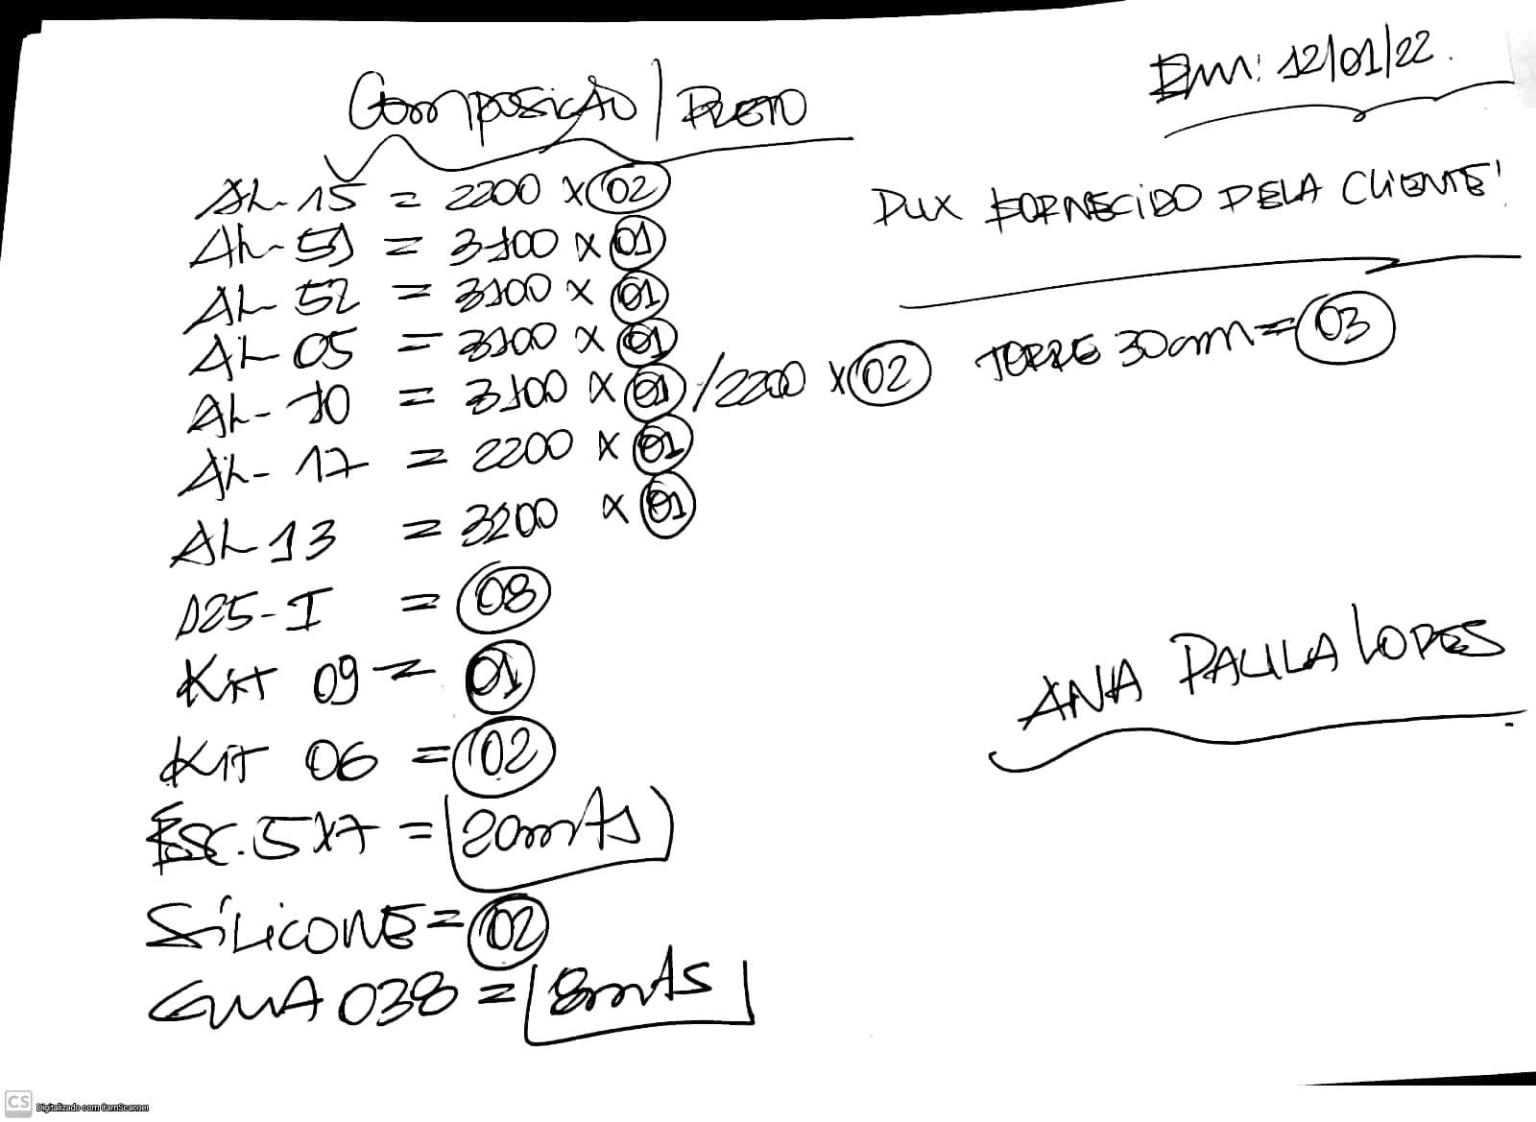 Composição / PRETO
Em: 12/01/22.
AL-15 = 2200 x 02
AL-51 = 3100 x 01
AL 52 = 3100 x 01
AL 05 = 3100 x 01
AL-10 = 3100 x 01 / 2200 x 02
AL-17 = 2200 x 01
AL 13 = 3200 x 01
D25-I = 08
Kit 09 = 01
Kit 06 = 02
ESC. 5x7 = 20mts
SÍLICONE = 02
GUIA 038 = 8mts
PUX FORNECIDO PELA CLIENTE!
TORRE 30cm = 03
ANA PAULA LOPES
CS Digitalizado com CamScanner